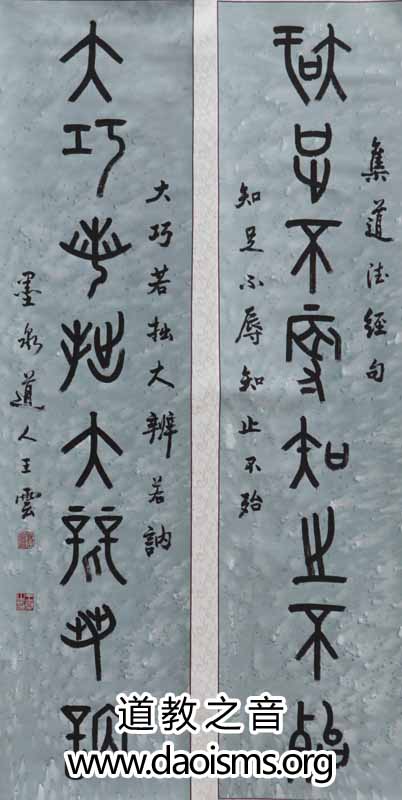 集道德经句
知足不辱知止不殆
知足不辱知止不殆
大巧若拙大辩若訥
大巧若拙大辨若訥
墨泉道人王雲
道教之音
www.daoisms.org